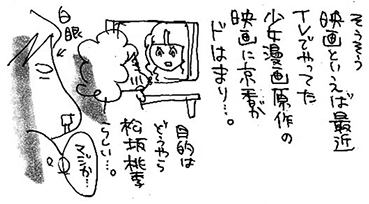 そうそう
映画といえば最近
TVでやってた
少女漫画原作の
映画に京香が
ドはまり…。
目的は
どうやら
松坂桃李
らしい…。
白眼
マジか…